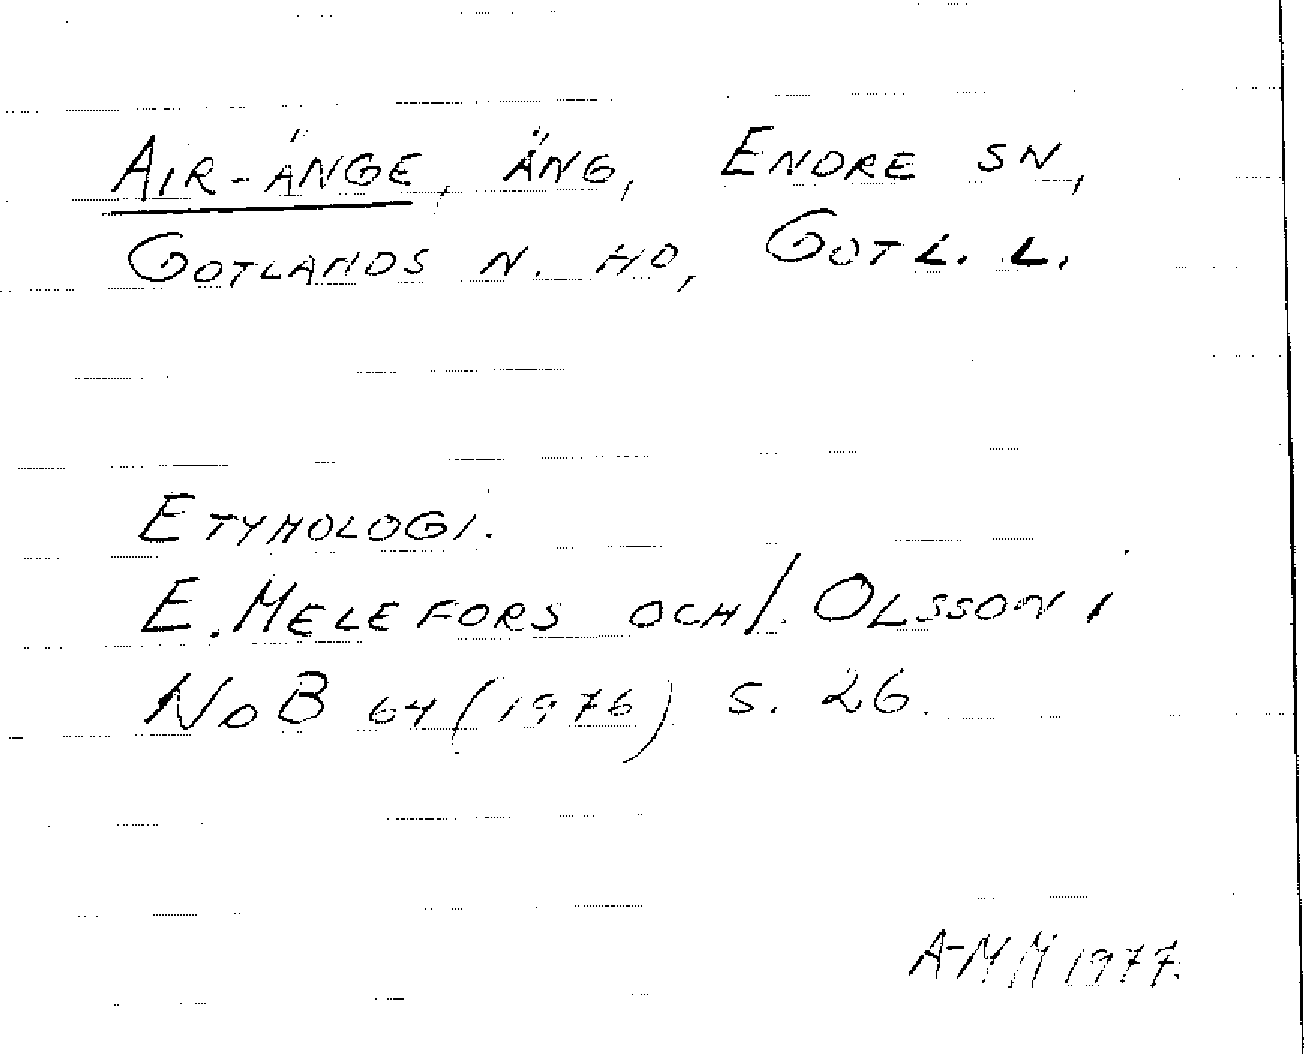 AIR-ÄNGE, ÄNG, ENDRE SN,
GOTLANDS N. HD, GOTL. L.
ETYMOLOGI.
E. MELEFORS OCH I. OLSSON I
NoB 64 (1976) S. 26.
A-MM 1977.